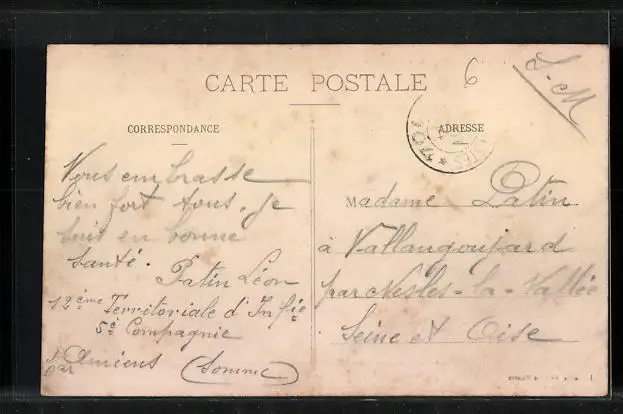 6
F. M
CARTE POSTALE
CORRESPONDANCE
ADRESSE
Vous embrasse
bien fort tous. Je
suis en bonne
santé.
Patin Léon
12ème Territoriale d'Infie
5e Compagnie
par Amiens (Somme)
Madame Patin
à Vallangoujard
par Nesles-la-Vallée
Seine et Oise